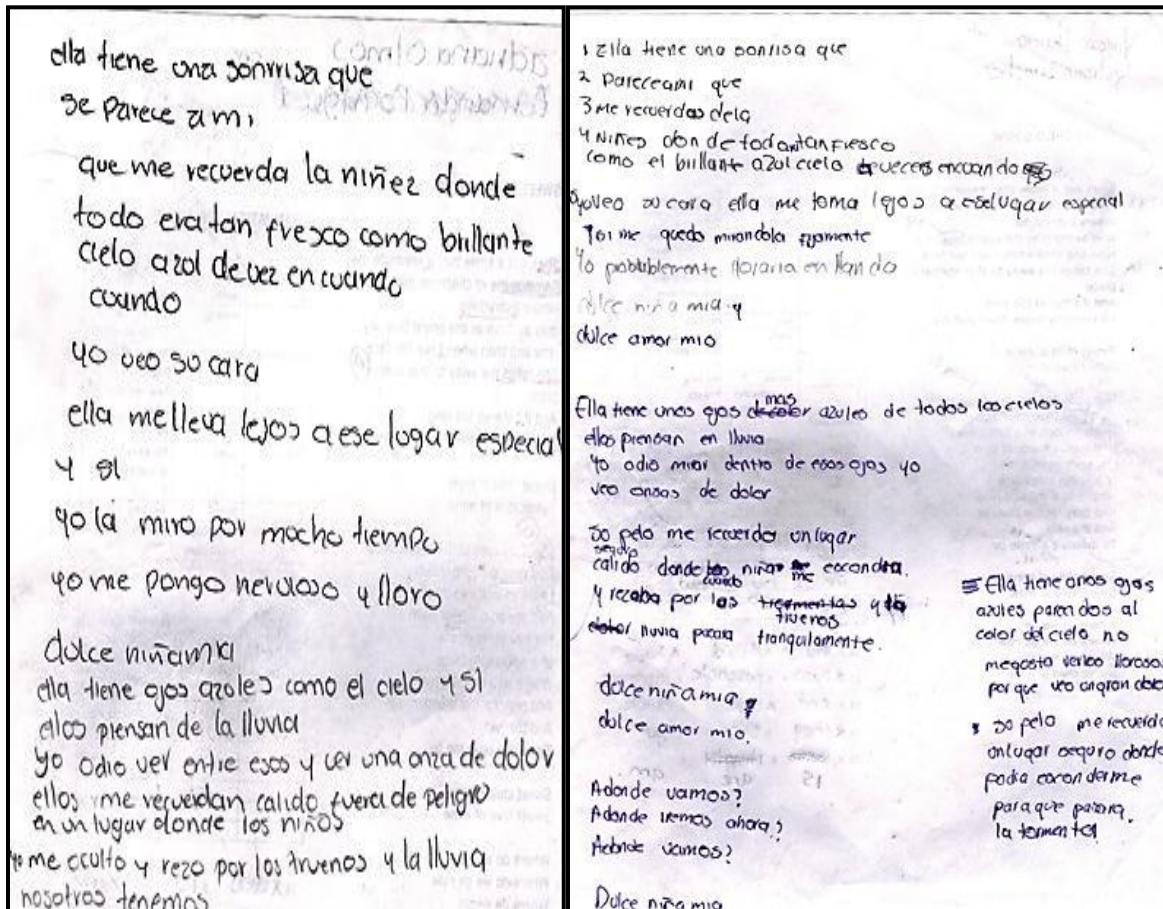 ella tiene una sonrrisa que
se parece a mi
que me recuerda la niñez donde
todo era tan fresco como brillante
cielo azul de vez en cuando
cuando
yo veo su cara
ella melleva lejos a ese lugar especial
y si
yo la miro por mucho tiempo
yo me pongo nervioso y lloro
dulce niñamia
ella tiene ojos azules como el cielo y si
ellos piensan de la lluvia
yo odio ver entre esos y ver una onza de dolor
ellos me recuerdan calido fuera de peligro
en un lugar donde los niños
yo me oculto y rezo por los truenos y la lluvia
nosotros tenemos
adriana olmos
1 Ella tiene una sonrisa que
2 Pareceami que
3 me recuerdas dela
4 Niñes don de todo tan fresco
como el brillante azul cielo
yoveo su cara ella me toma lejos a eselugar especial
me quedo mirandola fijamente
Yo lloraria en llan do
dulce niña mia y
dulce amor mio
Ella tiene unos ojos mas azules de todos los cielos
ellos piensan en lluvia
Yo odio mirar dentro de esos ojos yo
veo onsas de dolor
So pelo me recuerda unlugar
seguro
calido donde niña me escondia.
cuando
y rezaba por los truenos y la
lluvia pasara tranquilamente.
dulce niña mia y
dulce amor mio.
Adonde vamos?
Adonde iremos ahora?
Adonde vamos?
Dulce niña mia
Ella tiene unos ojos
azules pareci dos al
color del cielo no
megusta verlos llorosos
por que veo un gran dolor
so pelo me recuerda
unlugar seguro donde
podia escon derme
para que pasara
la tormenta